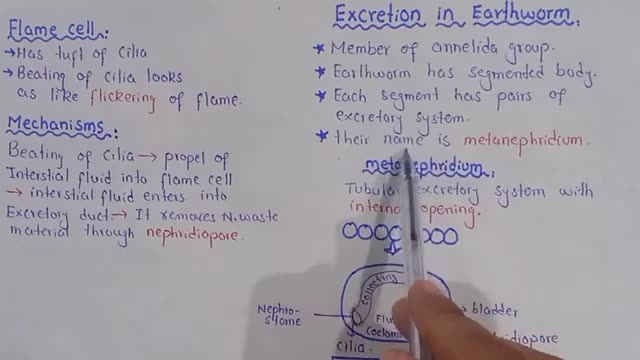 Flame cell:
→Has tuft of cilia
→Beating of cilia looks
as like flickering of flame.
Mechanisms:
Beating of Cilia → propel of
Interstial fluid into flame cell
→ interstial fluid enters into
Excretory duct → It removes N.waste
material through nephridiopore.
Excretion in Earthworm,
★ Member of annelida group.
★ Earthworm has segmented body.
★ Each segment has pairs of
excretory system.
★ their name is metanephridium.
Tubular excretory system with
opening.
Collecting
Nephro-
stome
bladder
Cilia.